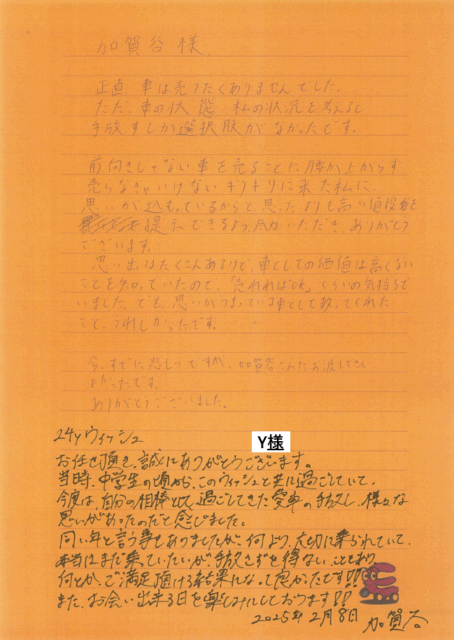 加賀谷様
正直車は売りたくありませんでした。
ただ、車の状態、私の状況を考えると
手放すしか選択肢がなかったです。
前向きじゃない車を売ることに腰が上がらず
売らなきゃいけないギリギリに来た私に
思いが込もっているからと思ったよりも高い値段を
提示できるよう
いただき、ありがとう
ございます。
思い出はたくさんあるけど、車としての価値は高くない
ことを知っていたので、「売れればOK」くらいの気持ちで
いました。でも、思いがつまっている車として扱ってくれた
こと、うれしかったです。
今、すでに恋しいですが、加賀谷さんにお渡しして
よかったです。
ありがとうございました。
24yウィッシュ
Y様
お任せ頂き、誠にありがとうございます。
当時、中学生の頃から、このウィッシュと共に過ごしていて、
今度は、自分の相棒として過ごしてきた愛車の手放し、様々な
思いがあったのだと感じました。
同い年と言う事もありましたが、何より、大切に乗られていて、
本当はまだ乗っていたいが、手放さずを得ない こともあり
何とか、ご満足頂ける結果になって良かったです!!
また、お会い出来る日を楽しみにしております!!
2025年2月8日 加賀谷